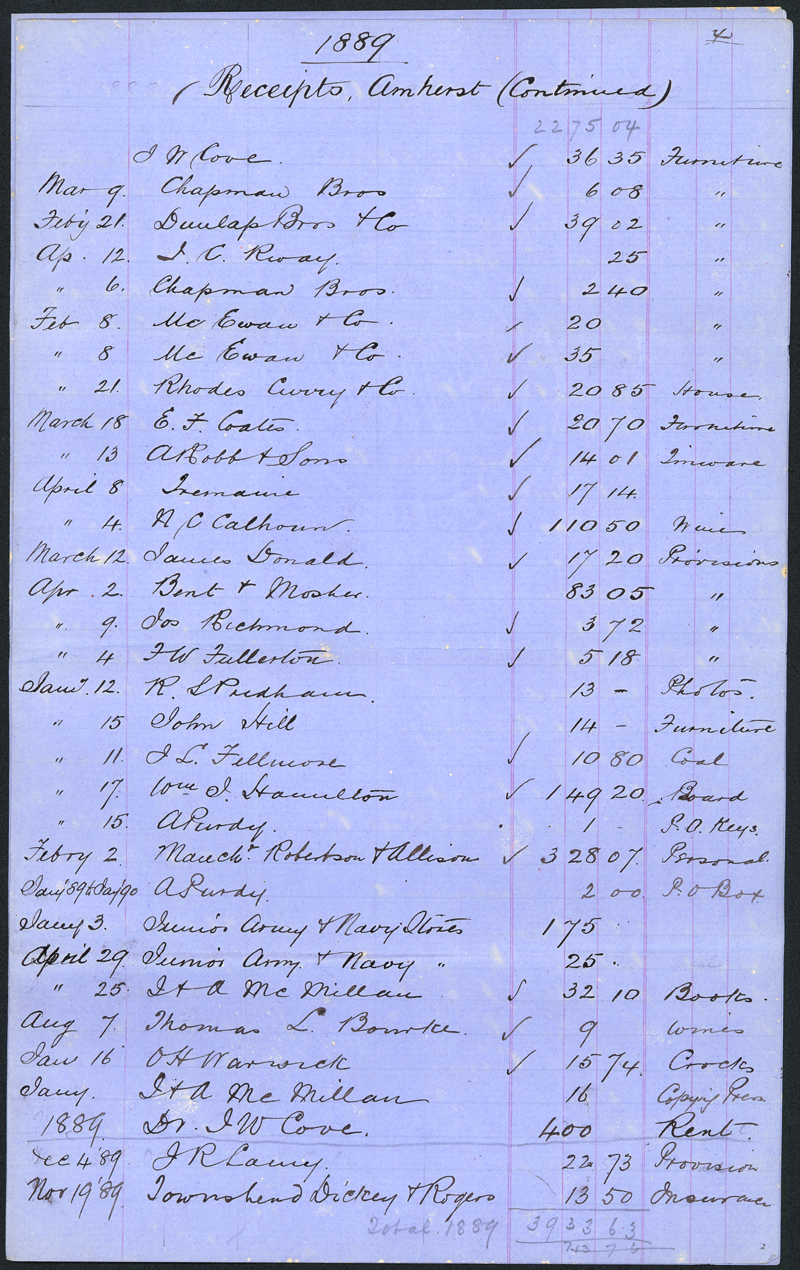 4
1889
Receipts, Amherst (Continued)
2275 04
J W Cove. ✓ 36 35 Furniture
Mar 9. Chapman Bros ✓ 6 08 "
Feby 21. Dunlap Bros & Co ✓ 39 02 "
Ap. 12. J. C. Rway. 25 "
" 6. Chapman Bros. ✓ 2 40 "
Feb 8. McEwan & Co. ✓ 20 "
" 8 McEwan & Co. ✓ 35 "
" 21. Rhodes Curry & Co. ✓ 20 85 House.
March 18 E. F. Coates. ✓ 20 70 Furniture
" 13 A Robb & Sons ✓ 14 01 Tinware
April 8 Tremaine ✓ 17 14.
" 4. N C Calhoun. ✓ 110 50 Wine
March 12. James Donald. ✓ 17 20 Provisions
Apr. 2. Bent & Mosher. 83 05 "
" 9. Jos Richmond. ✓ 3 72 "
" 4 F W Fullerton. ✓ 5 18 "
Jany. 12. R. S Pridham. 13 – Photos.
" 15 John Hill 14 – Furniture
" 11. J L. Fillmore ✓ 10 80 Coal
" 17. Wm J. Hamilton ✓ 149 20. Board
" 15. A Purdy. 1 – P.O. Keys.
Febry 2. Manchr Robertson & Allison ✓ 328 07. Personal.
Jany 89 to Jany 90 A Purdy. 2 00 P.O Box
Jany 3. Junior Army & Navy Stores 175
April 29. Junior Army & Navy " 25
" 25. J & A McMillan ✓ 32 10 Books.
Aug 7. Thomas L. Bourke. ✓ 9 wines
Jan 16 O H Warwick ✓ 15 74. Crocks
Jany. J & A McMillan 16 Copying Press.
1889. Dr. J W Cove. 400 Rent.
Dec 4 '89. J R Lamy. 22 73 Provision
Nov 19 '89. Townshend Dickey & Rogers 13 50 Insurance
Total 1889 3933 63